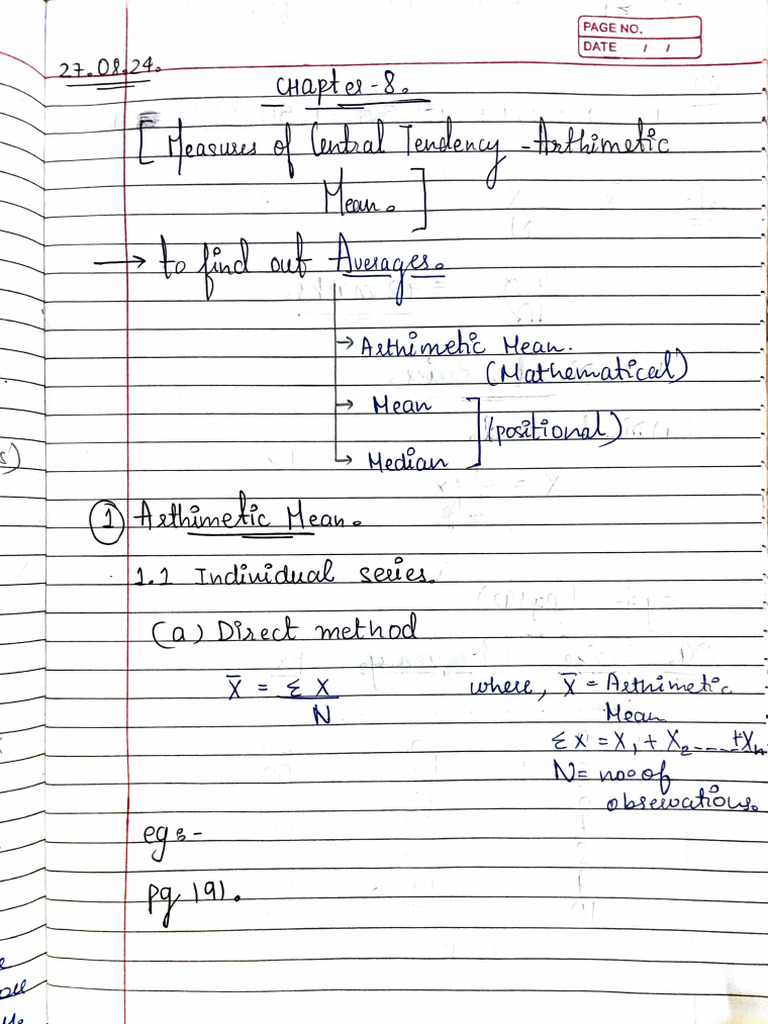 PAGE NO.
DATE / /
27.08.24.
Chapter-8.
[Measures of Central Tendency - Arthimetic
Mean.]
→ to find out Averages.
→ Arthimetic Mean.
(Mathematical)
→ Mean
(positional)
→ Median
① Arthimetic Mean.
1.1 Individual series.
(a) Direct method
X̄ = Σ X / N
where, X̄ = Arthimetic
Mean
Σ X = X₁ + X₂ ---- +Xₙ
N = no. of
observations.
eg:-
Pg 191.
s)